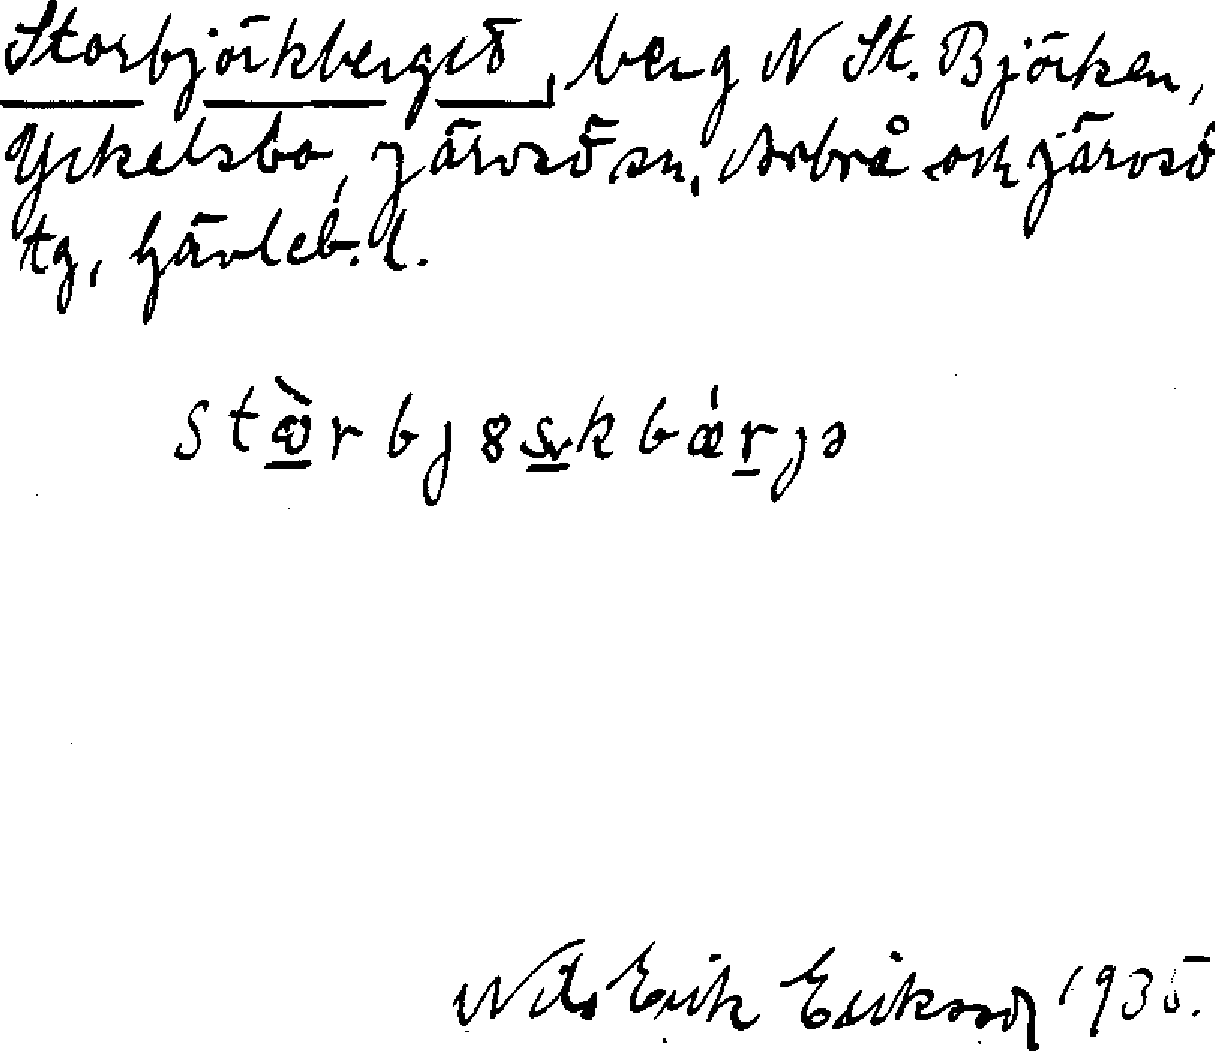 Storbjörkberget, berg N St. Björken,
Yckelsbo, Järvsö sn, Arbrå och Järvsö
tg, Gävleb. l.
Nils Erik Eriksson 1935.